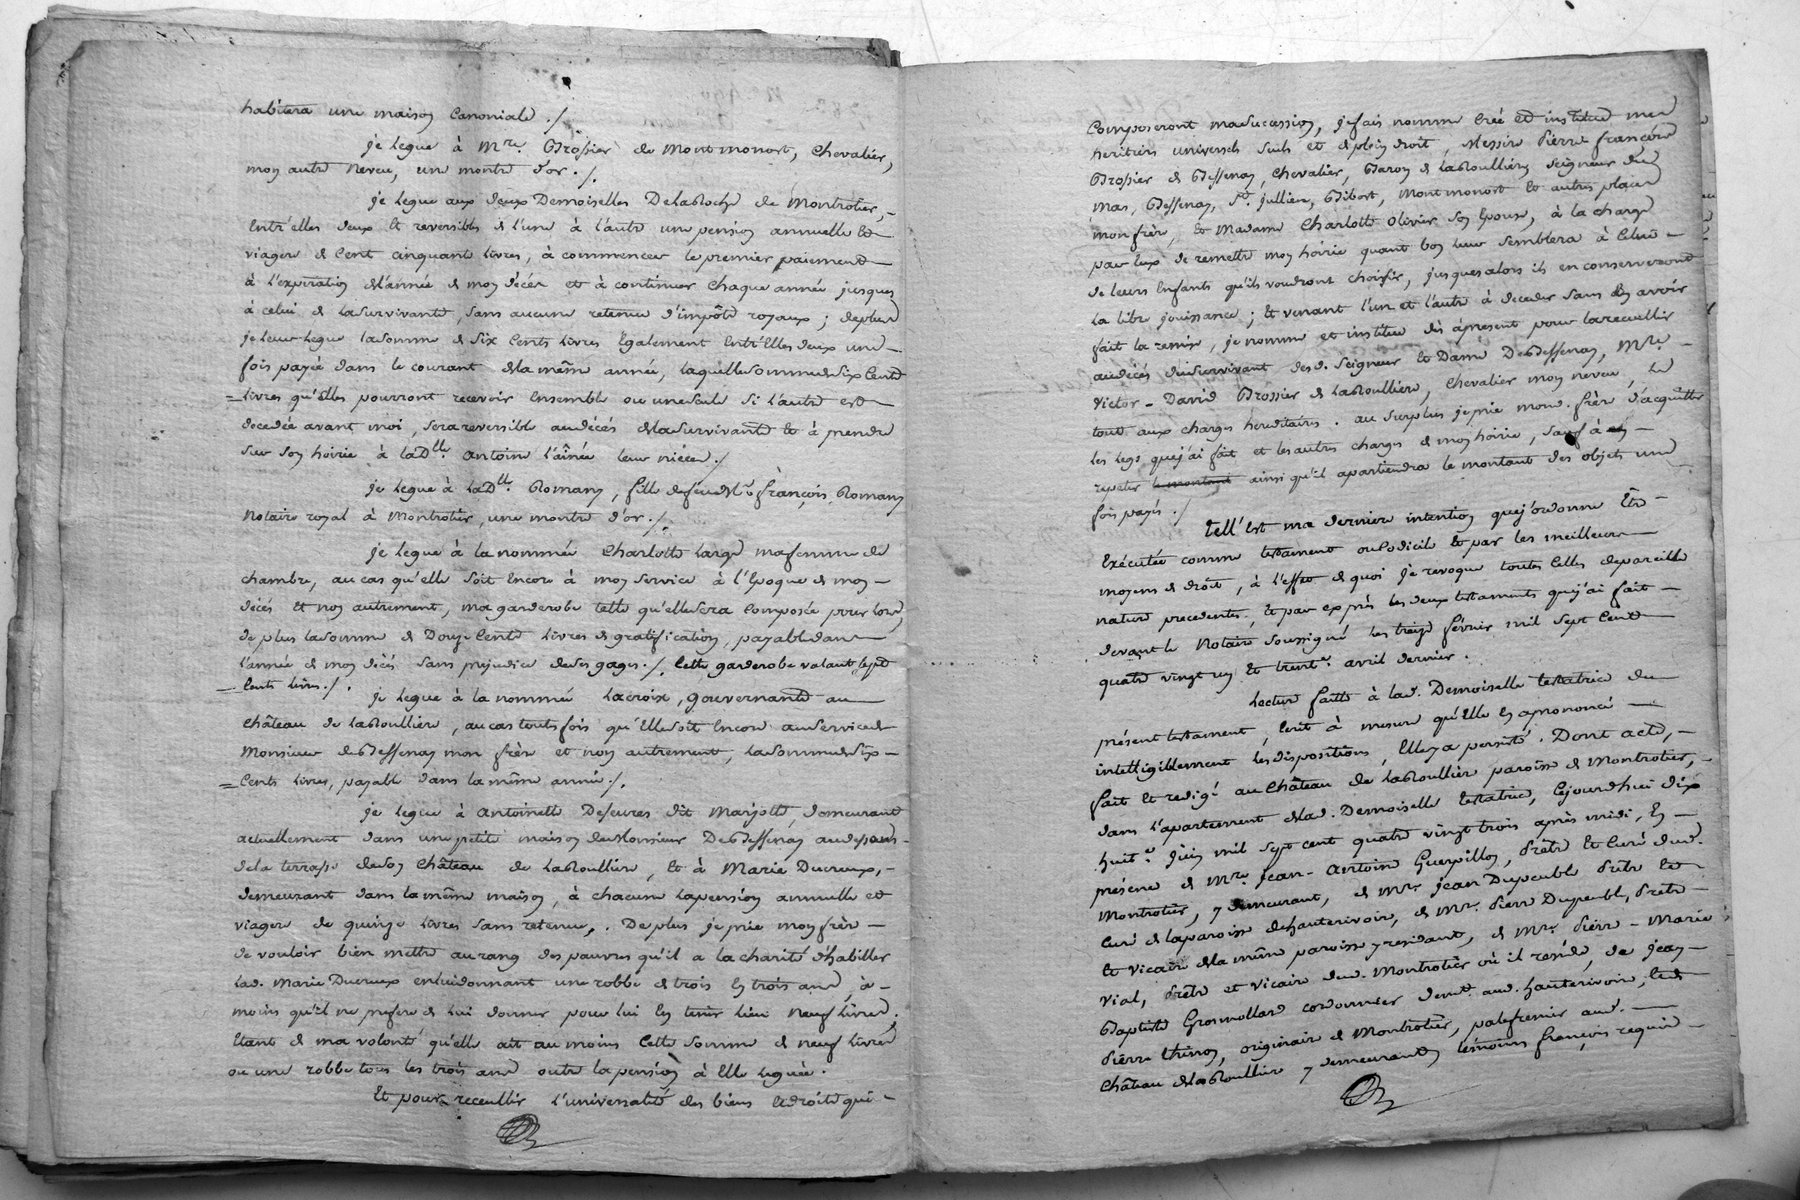 habitera une maison Canoniale ./
je legue à Mre. Brossier de Montmonort, Chevalier,
mon autre Neveu, une montre d'or ./.
je legue aux deux Demoiselles DelaRoche de Montrotier, -
Entr'elles deux Et reversible de l'une à l'autre une pension annuelle Et
viagere de Cent cinquante livres, à commencer le premier paiement
à l'expiration del'année de mon décés et à continuer Chaque année jusques
à celui de lasurvivante, sans aucune retenue d'impôts royaux ; deplus
je leur legue lasomme de Six Cents livres Egalement Entr'Elles deux une -
fois payée dans le courant dela même année, laquelle somme de six Cents
= livres qu'elles pourront recevoir Ensemble ou une seule si l'autre est
decedée avant moi, sera reversible au décés dela survivante Et à prendre
sur son hoirie à laDlle. Antoine l'aînée leur niéce ./
je legue à laDlle. Romany, fille defeu Mre françois Romany
Notaire royal à Montrotier, une montre d'or ./.
je legue à la nommée Charlotte Large mafemme de
chambre, au cas qu'elle soit Encore à mon service à l'Epoque de mon -
décés Et non autrement, ma garderobe telle qu'elle sera Composée pour lors,
de plus la somme de Douze Cents livres de gratification, payable dans
l'année de mon décés sans prejudice de ses gages ./. Cette garderobe valant sept
- Cents livres ./.
je legue à la nommée Lacroix, gouvernante au
Château de LaRoulliere, au cas toutefois qu'Elle soit Encore au service de
Monsieur deBessenay mon frère et non autrement, la somme de six -
= Cents livres, payable dans la même année ./.
je legue à Antoinette Deseures dit Marjotte, demeurant
actuellement dans une petite maison de Monsieur DeBessenay au dessous -
dela terrasse de son Château de LaRoulliere, Et à Marie Ducreux, -
demeurant dans la même maison, à chacune la pension annuelle et
viagere de quinze livres sans retenue, . De plus je prie mon frère -
de vouloir bien mettre au rang des pauvres qu'il a la charité d'habiller
lad. Marie Ducreux en lui donnant une robbe de trois En trois ans, à -
moins qu'il ne prefere de lui donner pour lui En tenir lieu neuf livres,
Etant de ma volonté qu'elle ait au moins Cette Somme de neuf livres
ou une robbe tous les trois ans outre la pension à Elle leguée .
Et pour receullir l'universalité des biens Et droits qui -
Composeront ma sucession, je fais nomme Créé et institue mes
heritiers universels seuls et de plein droit, Messire Pierre françois
Brossier de Bessenay, Chevalier, Baron de LaRoulliere, Seigneur du
Mas, Bessenay, St. Jullien, Bibost, Montmonort Et autres places
mon frère, Et Madame Charlotte Olivier son Epouse, à la charge
par Eux de remettre mon hoirie quant bon leur semblera à Celui -
de leurs Enfants qu'ils voudront choisir, jusques alors ils en conserveront
la libre jouissance ; Et venant l'un et l'autre à deceder sans En avoir
fait la remise, je nomme et institue dès àprésent pour la receullir
au décés du survivant desd. Seigneur Et Dame DeBessenay, Mre. -
Victor - David Brossier de LaRoulliere, Chevalier mon neveu, le
tout aux charges hereditaires . au surplus je prie mond. frère d'acquitter
les legs que j'ai fait et les autres charges de mon hoirie, sauf à en -
repeter le montant ainsi qu'il apartiendra le montant des objets une
fois payés ./
Tell'Est ma derniere intention que j'ordonne Etre -
Exécutée comme testament ou Codicile Et par les meilleurs
moyens de droit, à l'effet de quoi je revoque toutes Celles de pareille
nature precedentes, Et par exprès les deux testaments que j'ai fait -
devant le Notaire soussigné les treize février mil sept cent
quatre vingt un Et trente avril dernier .
Lecture faitte à lad. Demoiselle testatrice du
présent testament, Ecrit à mesure qu'Elle En a prononcé -
intelligiblement les dispositions, Elle y a persisté . Dont acte, -
fait Et redigé au Château de LaRoulliere paroisse de Montrotier, -
dans l'apartement delad. Demoiselle testatrice, Cejourdhui dix
huite. Juin mil sept cent quatre vingt trois après midi, En -
présence de Mre. Jean - Antoine Guerpillon, Prêtre Et Curé dud.
Montrotier, y demeurant, de Mre. Jean Dupeuble Prêtre Et
Curé de la paroisse de hauterivoire, de Mre. Pierre Dupeuble, Prêtre -
Et Vicaire dela même paroisse y residant, de Mre. Pierre - Marie
Vial, Prêtre et Vicaire dud. Montrotier où il reside, de Jean -
Baptiste Grosmollard cordonnier demt. aud. hauterivoire, Et de
Pierre Thinon, originaire de Montrotier, palefrenier aud. -
Château deLaRoulliere y demeurant, témoins françois requis -